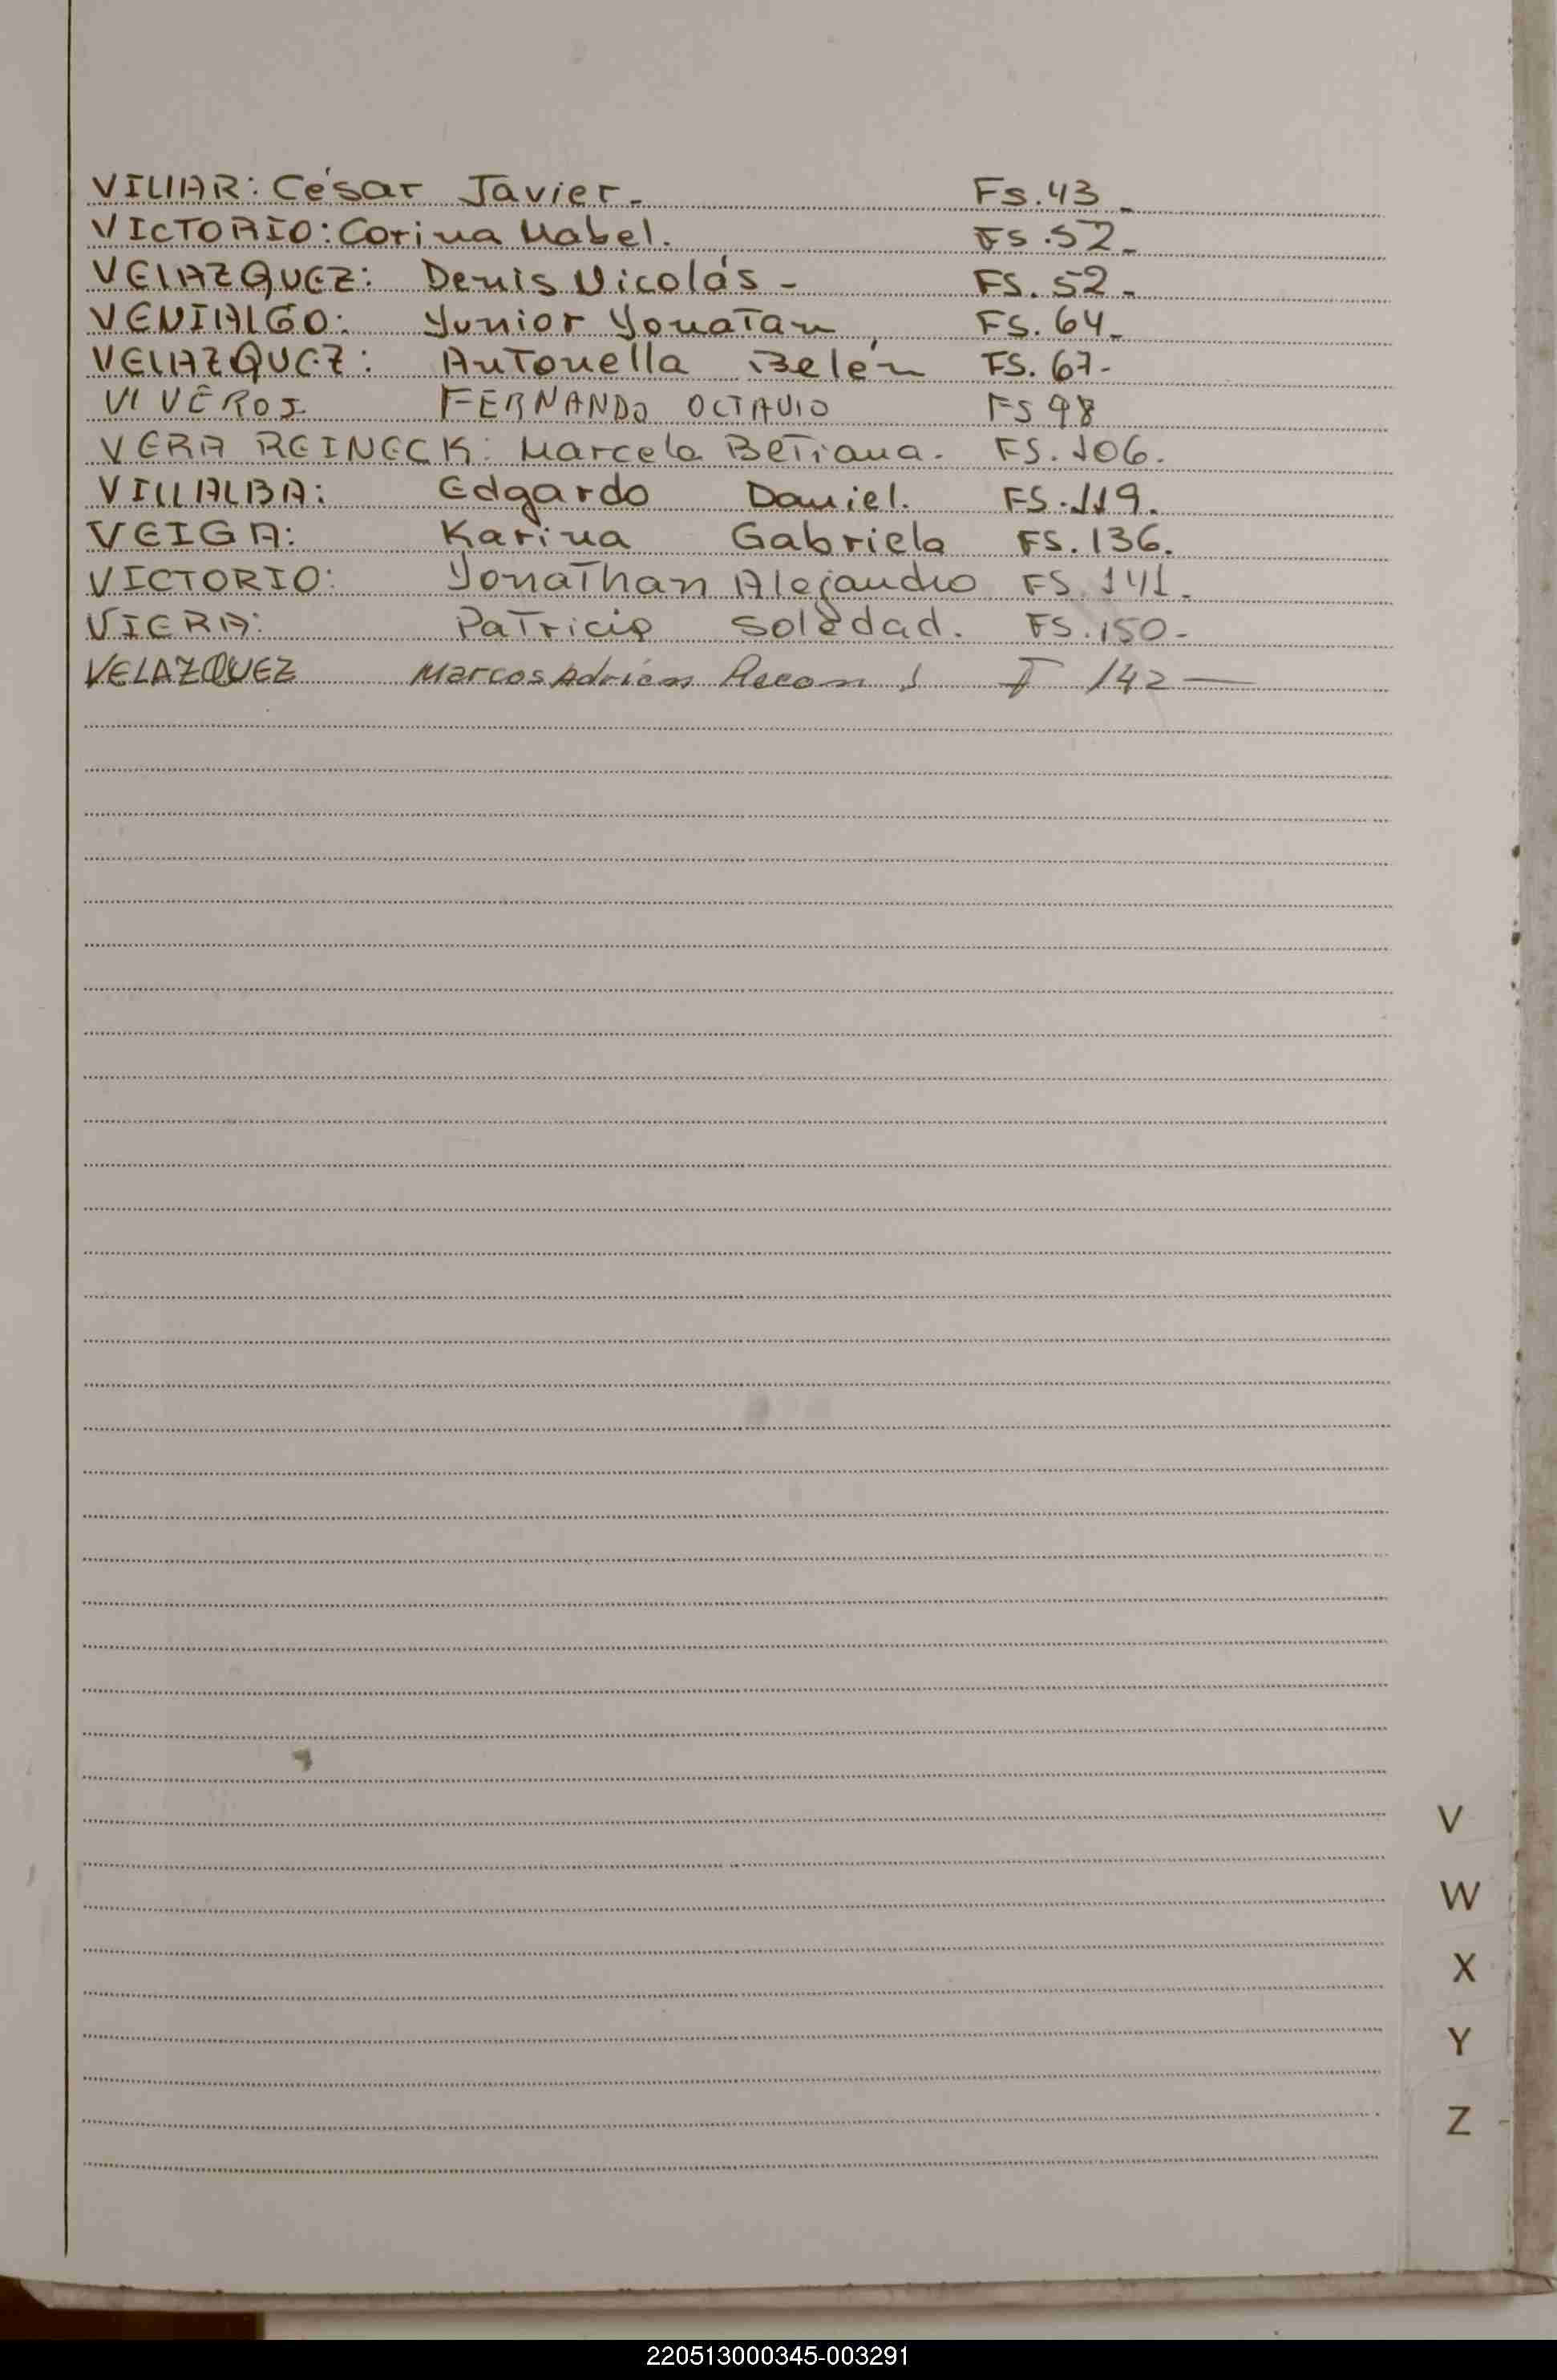 VILLAR: César Javier. Fs. 43_
VICTORIO: Corina Mabel. FS. 52_
VELAZQUEZ: Denis Nicolás - FS. 52_
VENIALGO: Yunior Yonatan FS. 64_
VELAZQUEZ: Antonella Belén FS. 67-
VIVEROS FERNANDO OCTAVIO FS 98
VERA REINECK: Marcela Betiana. FS. 106.
VILLALBA: Edgardo Daniel. FS. 119.
VEIGA: Karina Gabriela FS. 136.
VICTORIO: Yonathan Alejandro FS. 141_
VIERA: Patricia Soledad. FS. 150-
VELAZQUEZ Marcos Adrián 142 —
V
W
X
Y
Z
220513000345-003291